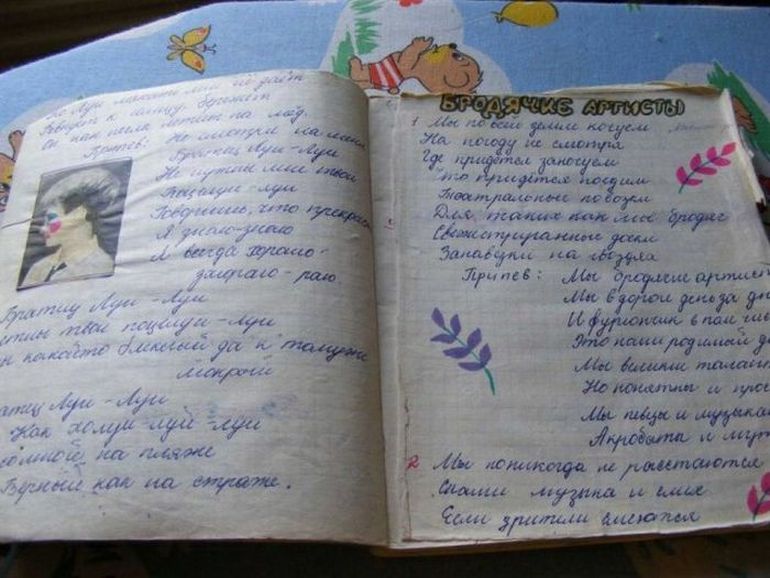 Но Луи
Говорит к концу. Брижит
Он как пчела летит на мёд.
Припев: Не смотри на меня
Братец Луи-Луи
Не нужны мне твои
Поцелуи-луи
Говоришь, что прекрас
Я знаю-знаю
И всегда хорошо-
Братиц Луи-Луи
твои поцелуи-луи
какойто блеклый да к томуже
Мокрый
атиц Луи-Луи
Как холуи-луй-луи
со мной на пляже
Верный как на страже.
БРОДЯЧИЕ АРТИСТЫ
1 Мы по всей земли кочуем
На погоду не смотря
Где придётся заночуем
Что придётся поедим
Театральные побочки
Для таких как мы бродяг
Свежеструганные доски
Занавески на гвоздях
Припев: Мы бродячие артист
Мы в дороге день за дн
И фургончик в пол
Это наш родимый д
Мы великие талант
Но понятны и прос
Мы певцы и музыкан
Акробаты и шут
2 Мы по никогда не расстаются
Снами музыка и смех
Если зрители смеются